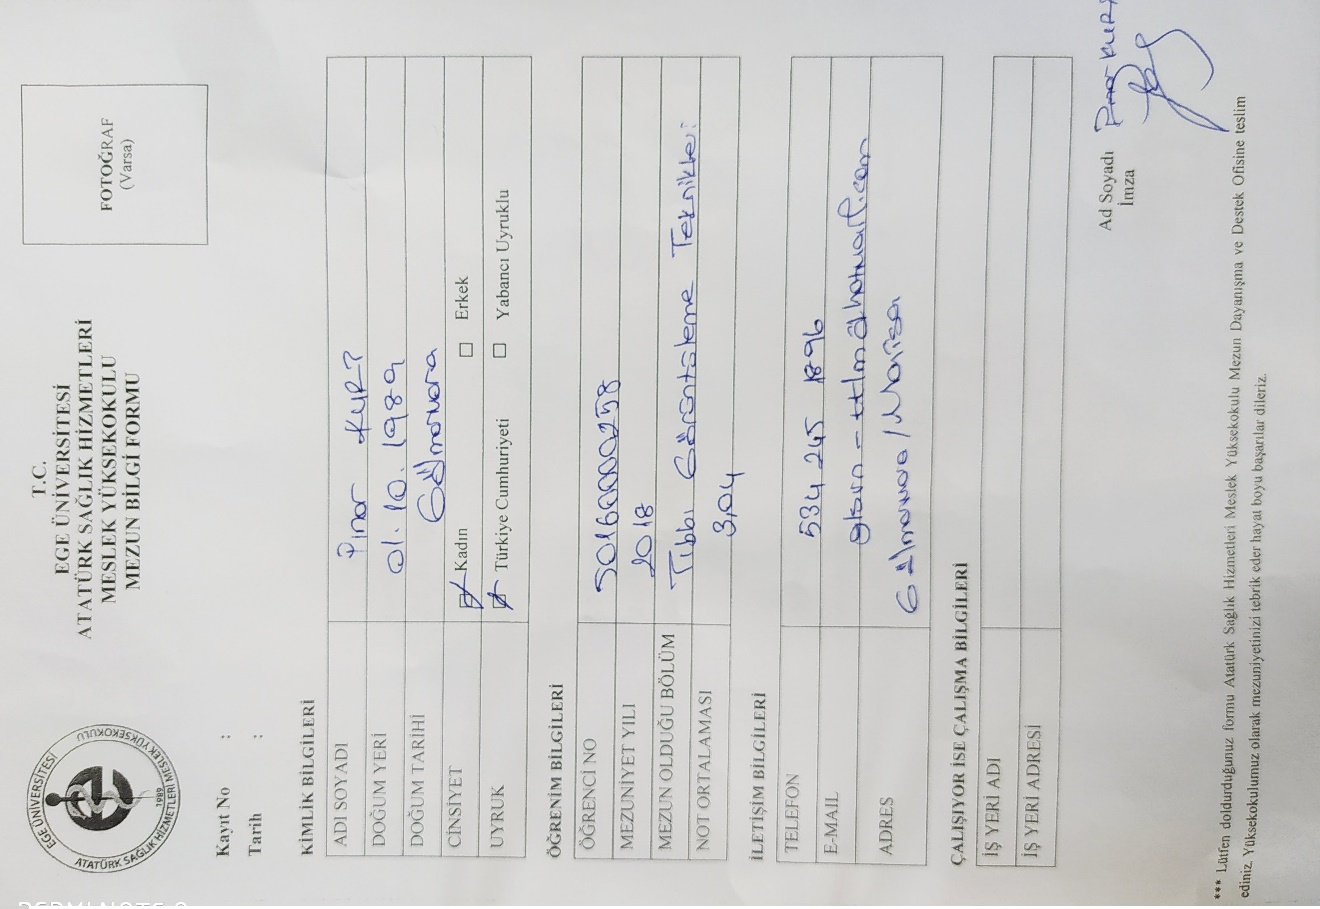 T.C.
EGE ÜNİVERSİTESİ
ATATÜRK SAĞLIK HİZMETLERİ
MESLEK YÜKSEKOKULU
MEZUN BİLGİ FORMU
EGE ÜNİVERSİTESİ
ATATÜRK SAĞLIK HİZMETLERİ MESLEK YÜKSEKOKULU
1989
FOTOĞRAF
(Varsa)
Kayıt No :
Tarih :
KİMLİK BİLGİLERİ
ADI SOYADI Pınar KURT
DOĞUM YERİ 01.10.1989
DOĞUM TARİHİ Gölmarmara
CİNSİYET Kadın Erkek
UYRUK Türkiye Cumhuriyeti Yabancı Uyruklu
ÖĞRENİM BİLGİLERİ
ÖĞRENCİ NO 50160000258
MEZUNİYET YILI 2018
MEZUN OLDUĞU BÖLÜM Tıbbi Görüntüleme Teknikleri
NOT ORTALAMASI 3,04
İLETİŞİM BİLGİLERİ
TELEFON 534 245 1896
E-MAIL
ADRES Gölmarmara / Manisa
ÇALIŞIYOR İSE ÇALIŞMA BİLGİLERİ
İŞ YERİ ADI
İŞ YERİ ADRESİ
Ad Soyadı Pınar KURT
İmza
*** Lütfen doldurduğunuz formu Atatürk Sağlık Hizmetleri Meslek Yüksekokulu Mezun Dayanışma ve Destek Ofisine teslim
ediniz. Yüksekokulumuz olarak mezuniyetinizi tebrik eder hayat boyu başarılar dileriz.